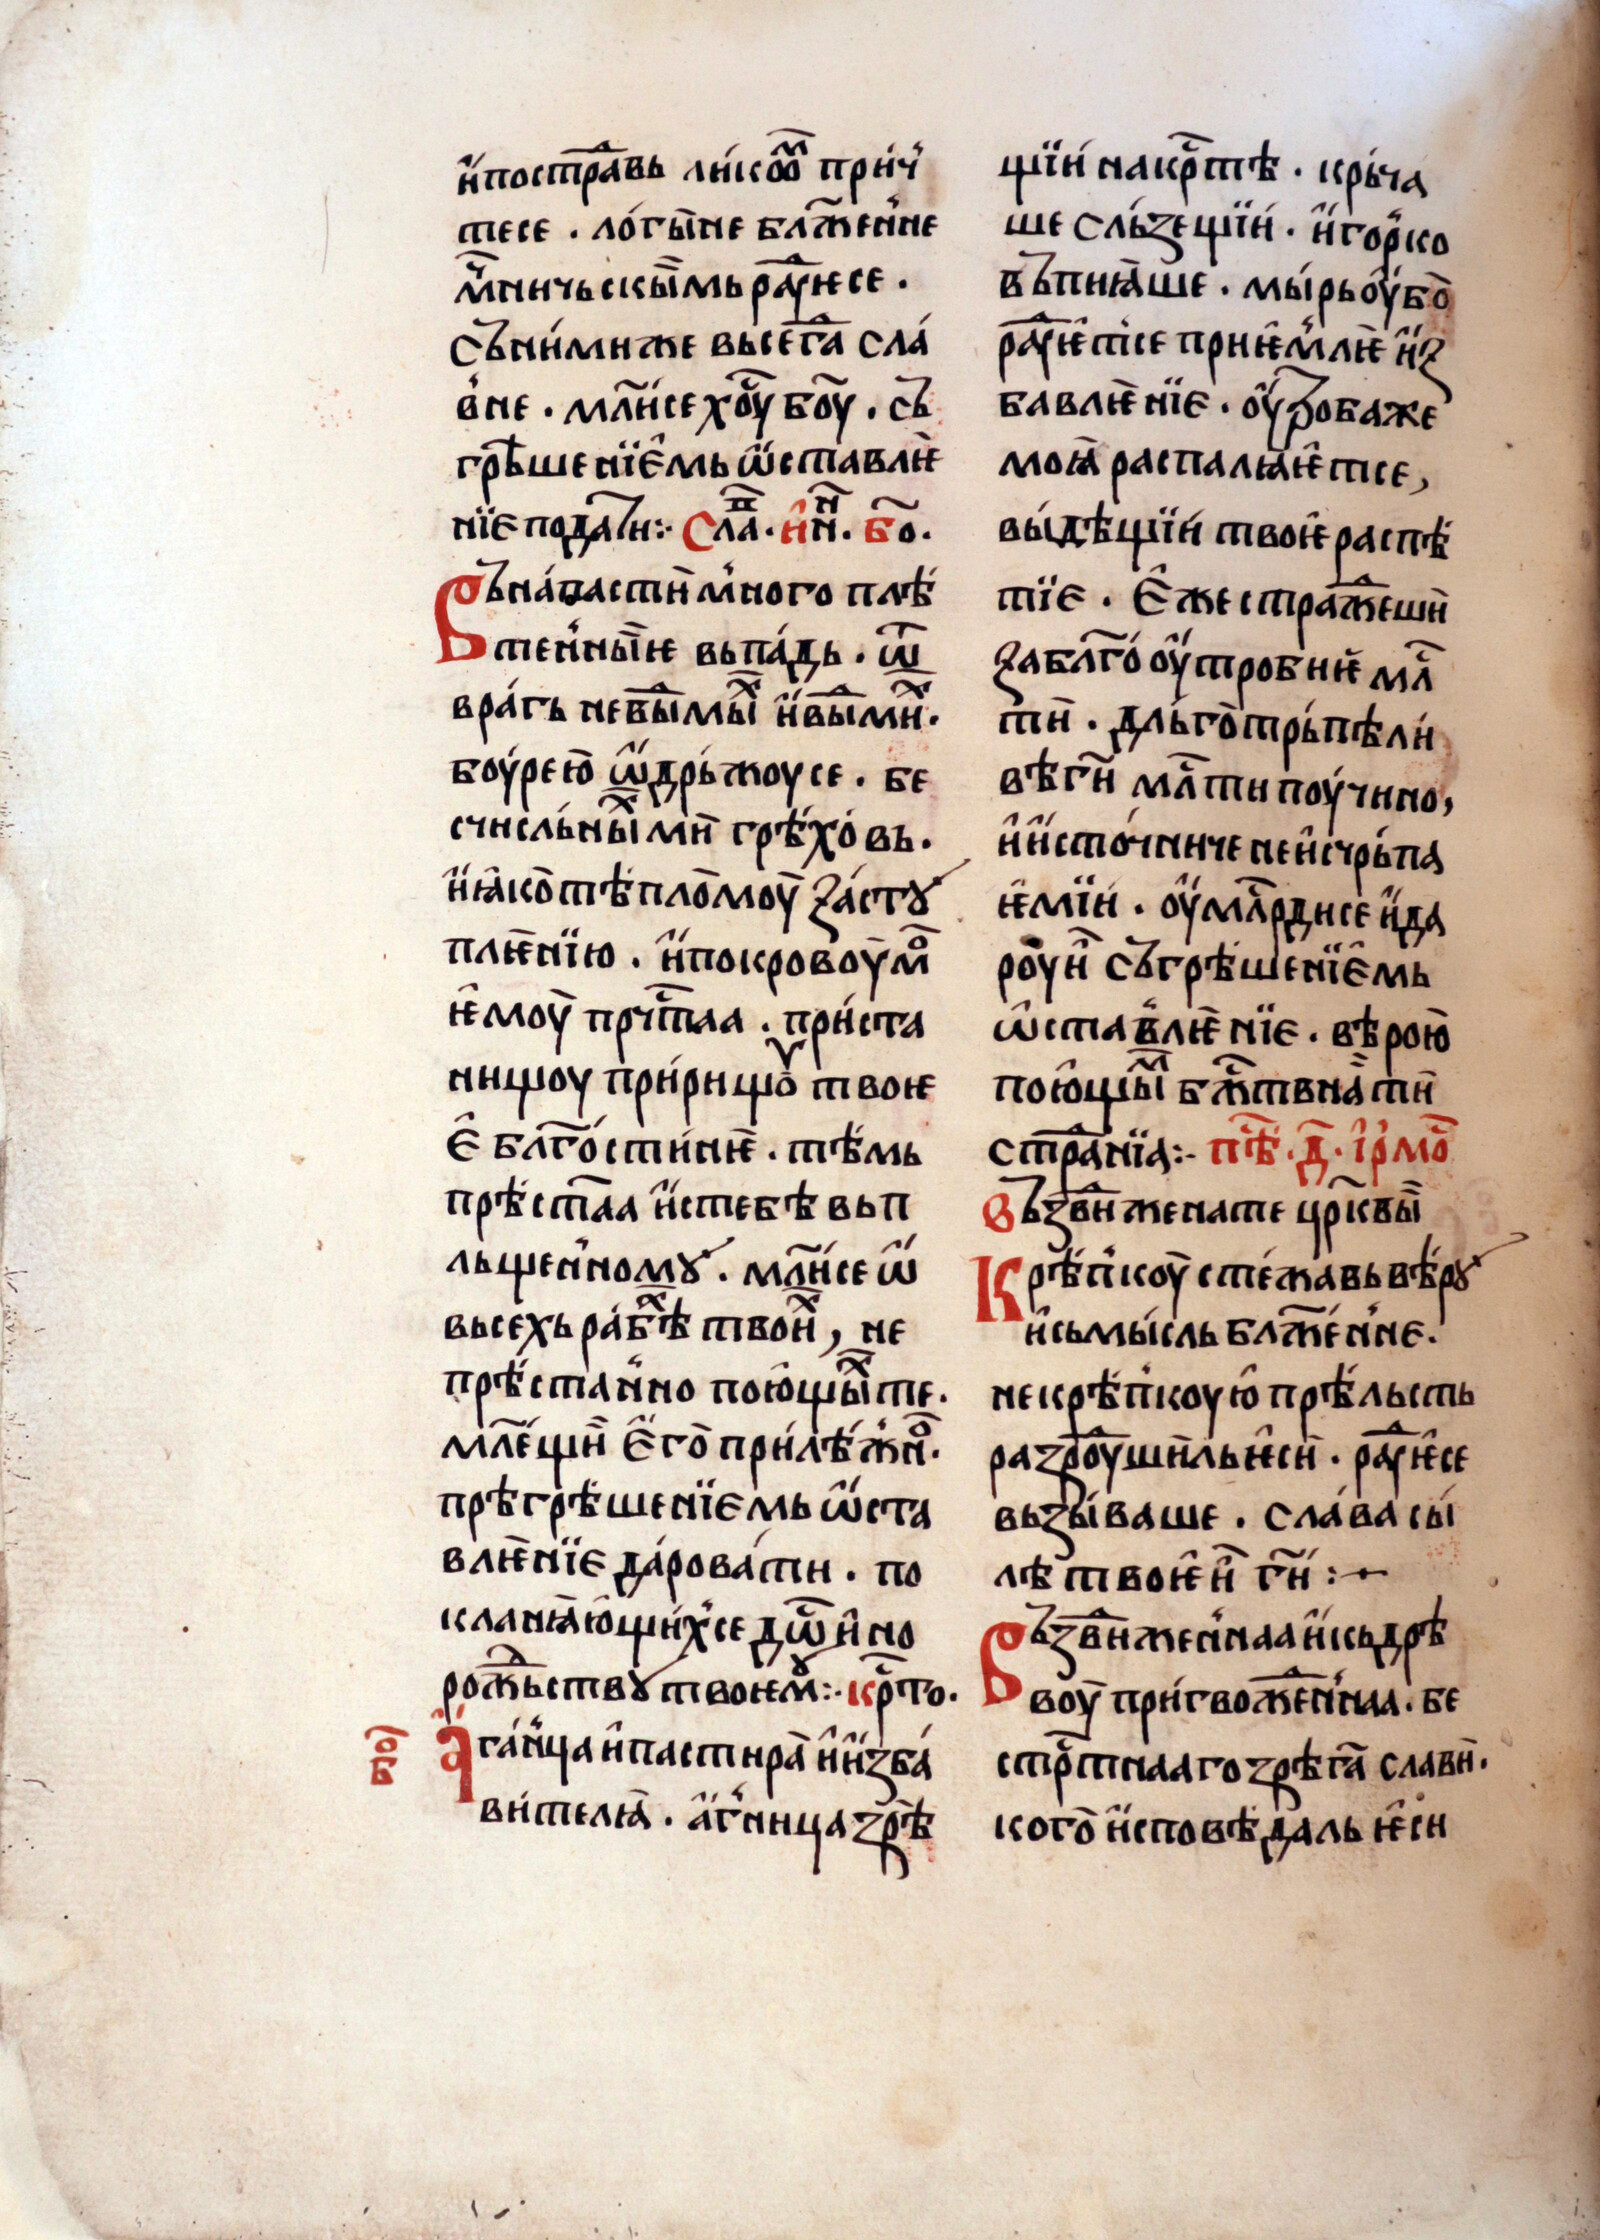 и҆пострⷣавь ли́коⷨ при́ч
тесе . ло́гы̏не бл҃же́нне
мⷱ҇ничьскы̏мь раⷣꙋи̏се .
Съни́миже вьсегⷣа сла́
вне . мл҃и́се хо҃ꙋ бо҃ꙋ . съ
грѣшенїе҆мь ѡ҆ставлѥ
нїе пода́ти:· Слаⷡ · и҆нⷩ · бо҃ .
Въна́пасти̏ мно́го плѣ́
те́нны̏ѥ вьпа́дь . ѿ
вра́гь невⷣы̏мыⷯ и҆вⷣы̏миⷯ·
боу́рею̏ ѡ҆дрьжоусе . бе
счисль́ныⷯми̏ грѣ́хо́вь .
и҆ꙗ҆ко̏тѣпло̏моу̏ за́стꙋ
плѥ̏нїю . и҆покровоу̏моⷨ
ѥ҆моу̏ прⷱ҇таа . при́ста
нищоу при́рищоⷯ твоѥ
е҆ бл҃го́сти́нѥ̏ . тѣ́мь
прѣ́ст҃аа и҆стебѣ вьп
льще́нномꙋ . мл҃и́се ѡ҆
вьсехь ра́бⷯѣ твоиⷯ, не
прѣ́ста́нно пою҆щыⷯте .
мл҃е́щи̏ е҆го̏ при́лѣ́жноⷨ·
прѣгрѣшенїемь ѡ҆ста
влѥ̏нїе да́рова́ти . по
кланꙗ̏ю҆щи́хсе дѡ҃и҆но
рожⷣьствꙋ твоѥмⷹ:· крⷭ҇то .
бо҃ро
А҆га́нца и҆пастира̏ и҆и҆зба́
ви́телꙗ̏ . а҆гница зрѣ
щїи́ накрⷭ҇тѣ . кри́ча
ше сль́зещїи́ . и҆го́рко
въпиꙗ̏ше . мы́рьоу҆бо̏
раⷣꙋѥ҆тсе приѥ҆млѥ̏ и҆з
бавлѥ̏нїе . оу҆тро̏баже
моꙗ̏ распалꙗѥ҆тсе,
вы́дѣщїи́ твоѥ распѣ
тїе . е҆жестраⷣжеши̏
забл҃го́ оу҆тробнїѥ̏ млⷭ҇
ти̏ . дль́го̏трь́пѣли́
вѣгⷭ҇и млⷭ҇ти поу́чино,
и҆и҆сто́чниче неи҆счрь́па
ѥ҆мїи́ . оу҆млⷭ҇рдисе и҆да
роу̏и҆ съгрѣшенїе҆мь
ѡ҆ставлѥ̏нїе . вѣрою̏
пою҆щыⷨ бжⷭ҇твна̏ти̏
стрⷭ҇анїа:· пѣⷭ҇ · д҃ · і҆рмоⷭ҇
Въз̾вⷣиженате црⷦ҇вы̏
Крѣпкоу̏стежавьвѣрꙋ
и҆сьмы́сль бл҃же́нне .
некрѣпкоую҆ прѣ́льсть
разроⷣꙋши̏льѥ҆си̏ . раⷣꙋѥ҆се
вьзы́ваше . слава сы́
лѣ твоѥ҆и гⷭ҇и :·
Въз̾вⷣиже́ннаа и҆сьдрѣ
воу̏ при́гвожⷣе́ннаа . бе
стрⷭ҇тнааго зрѣгⷣа слави̏ .
кого̏ и҆сповѣдаль ѥ҆си